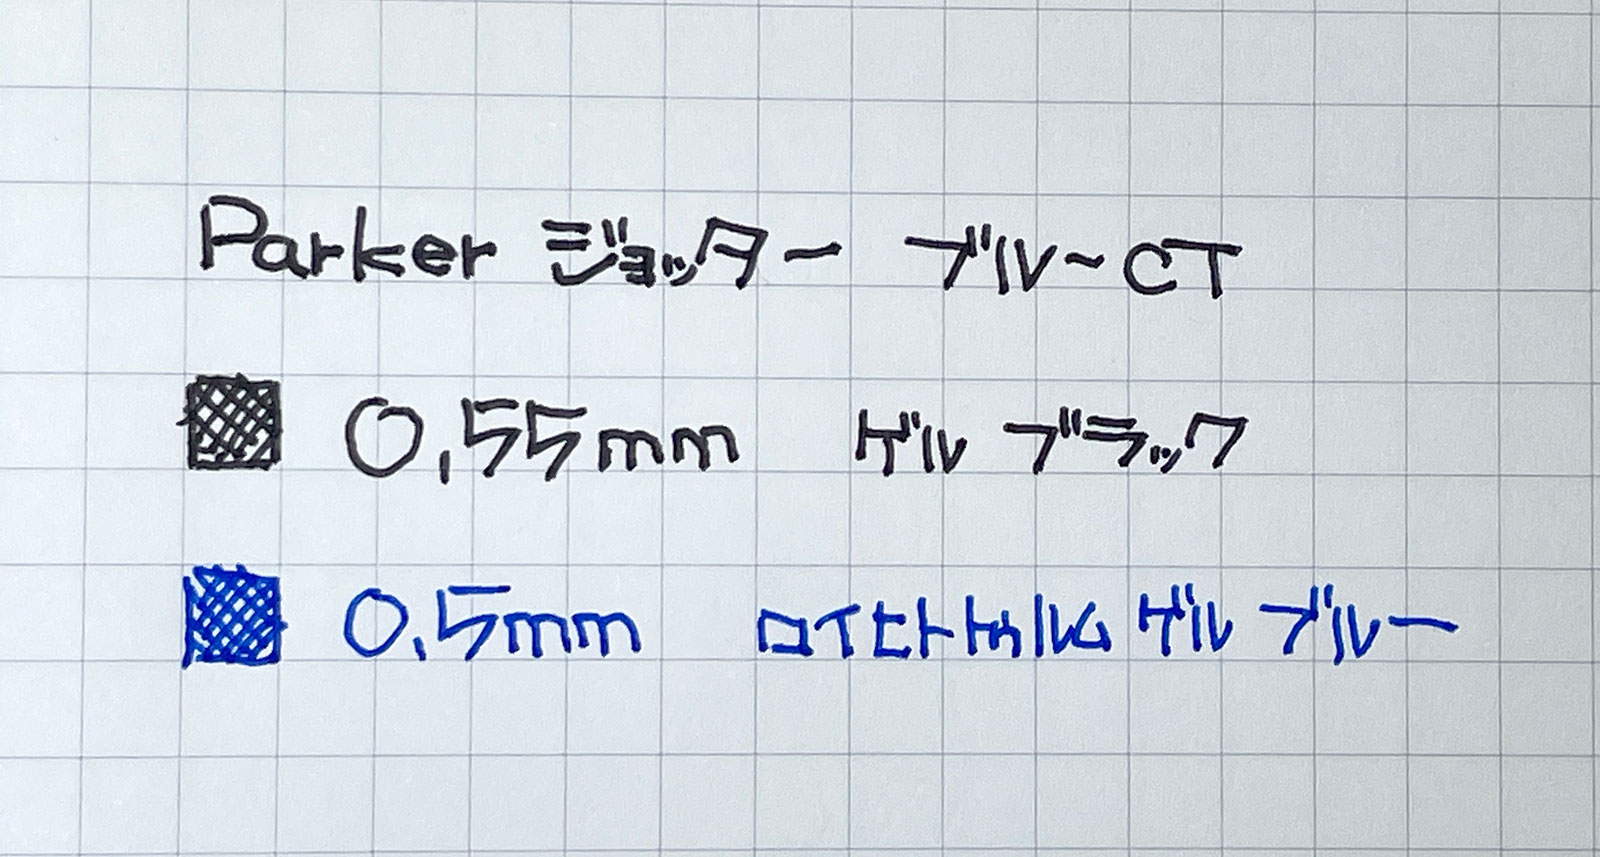 Parker ジョッター ブルーCT
0.55mm ゲル ブラック
0.5mm ロイヒトトゥルム ゲル ブルー